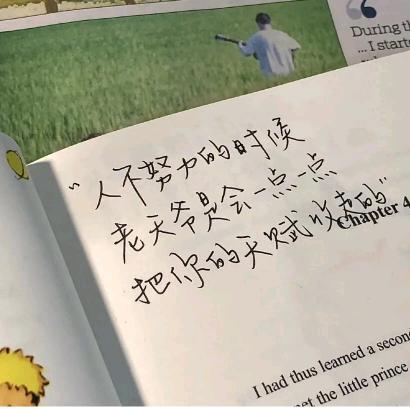 During th
... I starte
“人不努力的时候
老天爷是会一点一点
把你的天赋收走的”
Chapter 4
I had thus learned a second
et the little prince